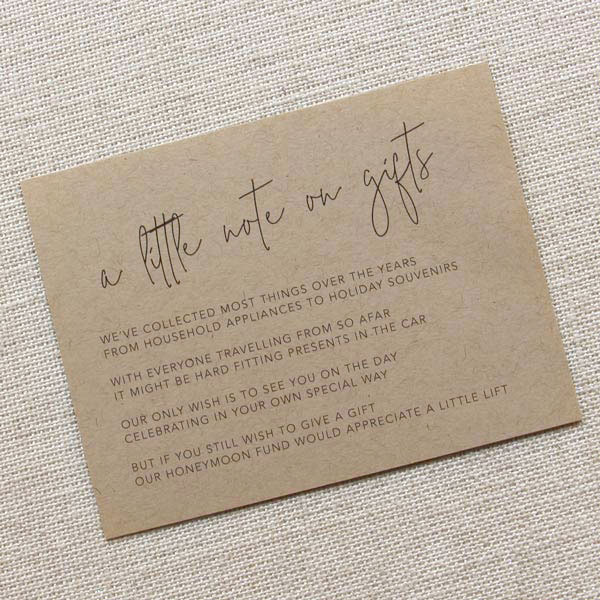 a little note on gifts
WE'VE COLLECTED MOST THINGS OVER THE YEARS
FROM HOUSEHOLD APPLIANCES TO HOLIDAY SOUVENIRS
WITH EVERYONE TRAVELLING FROM SO AFAR
IT MIGHT BE HARD FITTING PRESENTS IN THE CAR
OUR ONLY WISH IS TO SEE YOU ON THE DAY
CELEBRATING IN YOUR OWN SPECIAL WAY
BUT IF YOU STILL WISH TO GIVE A GIFT
OUR HONEYMOON FUND WOULD APPRECIATE A LITTLE LIFT